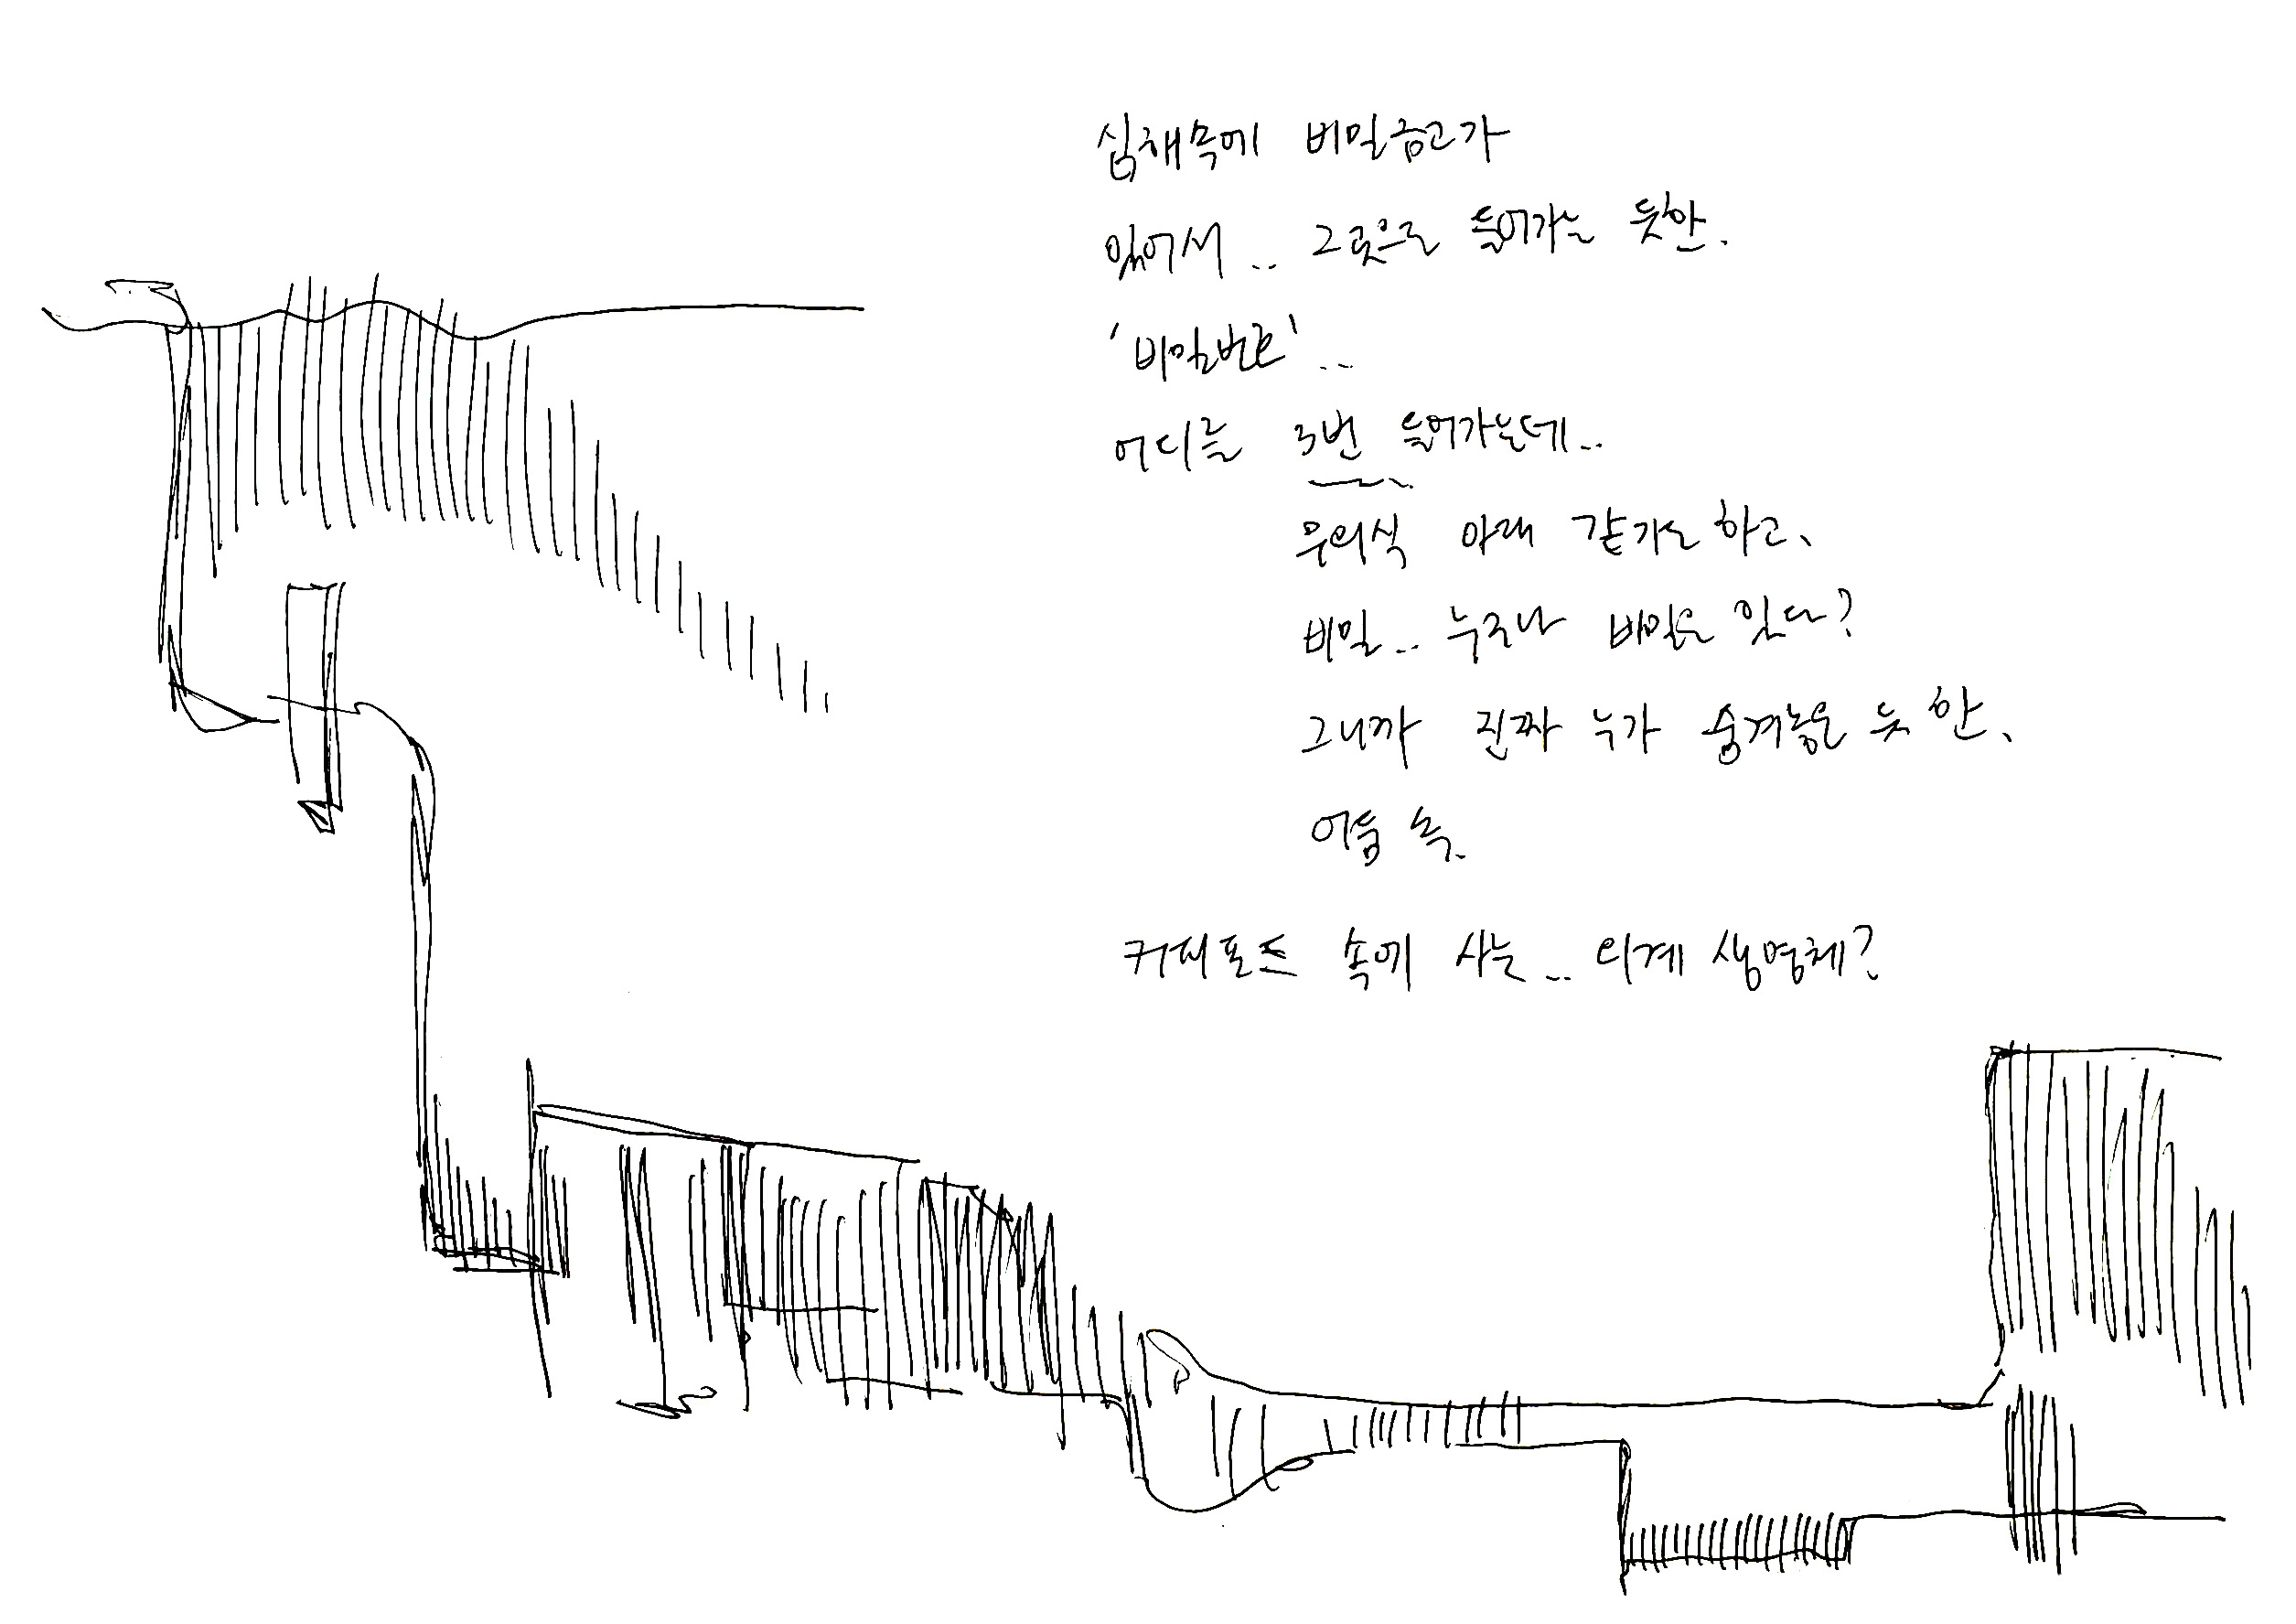 심해속에 비밀금고가
있어서.. 그곳으로 들어가는 듯한.
'비밀번호'..
어디를 3번 들어가는데..
무의식 아래 같기도 하고,
비밀.. 누구나 비밀은 있다?
그니까 진짜 누가 숨겨놓은 듯 한,
어둠 속.
커피포트 속에 사는.. 외계 생명체?